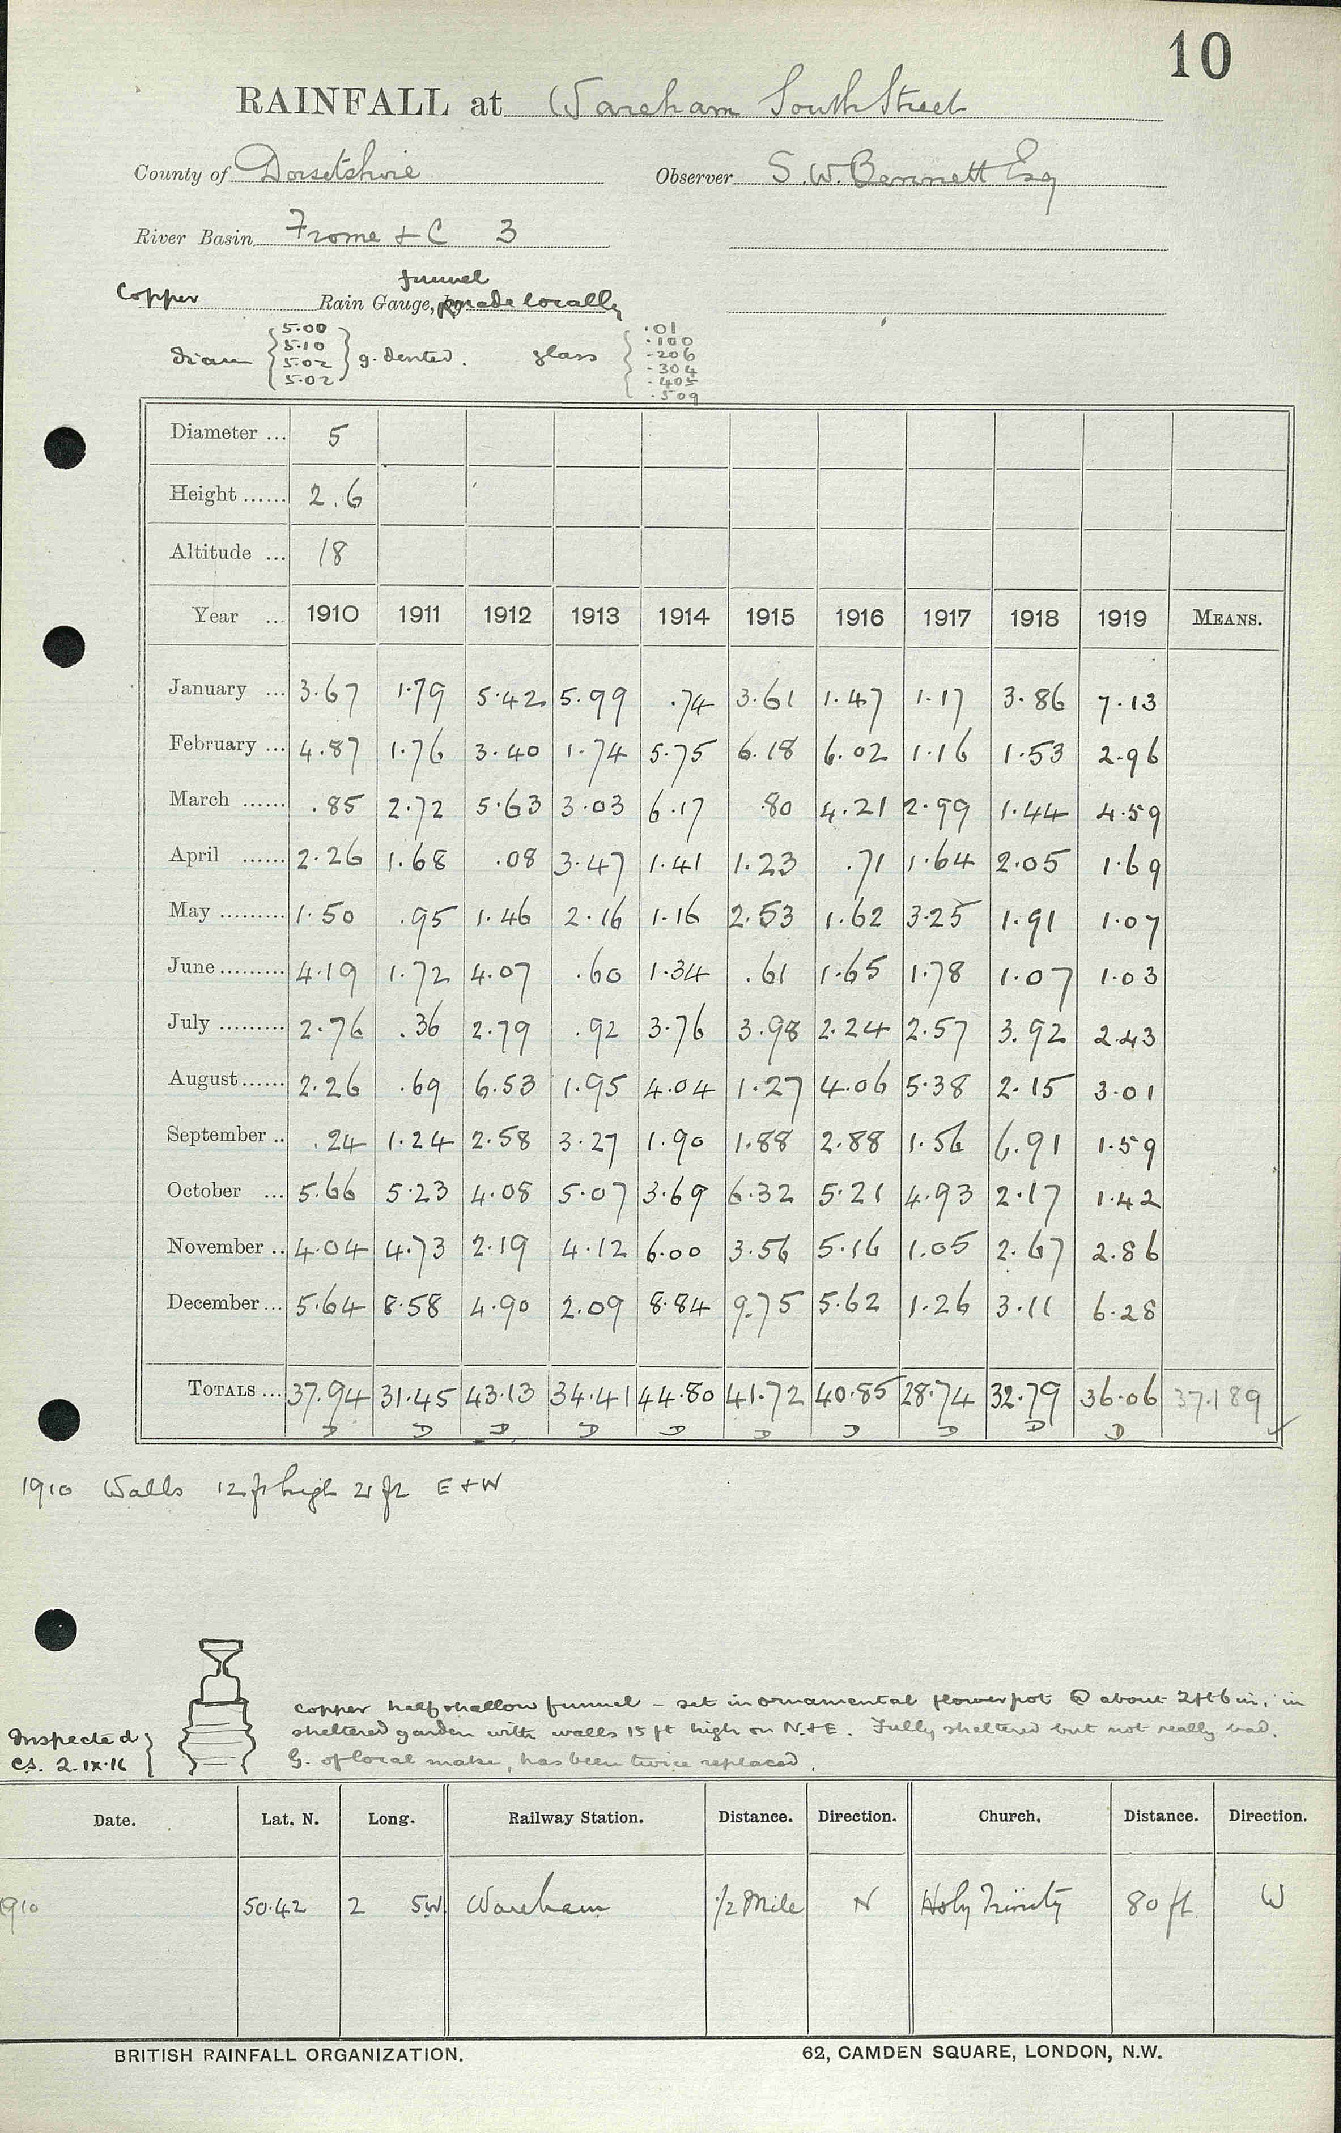 10
RAINFALL at Wareham South Street
County of Dorsetshire Observer S. W. Bennett Esq
River Basin Frome & C 3
funnel
Copper Rain Gauge, made locally
diam { 5.00 5.10 5.02 5.02 } g. dented. glass { .01 .100 .206 .304 .405 .509
Diameter ... 5
Height ...... 2.6
Altitude ... 18
Year ... 1910 1911 1912 1913 1914 1915 1916 1917 1918 1919 MEANS.
January ... 3.67 1.79 5.42 5.99 .74 3.61 1.47 1.17 3.86 7.13
February ... 4.87 1.76 3.40 1.74 5.75 6.18 6.02 1.16 1.53 2.96
March ...... .85 2.72 5.63 3.03 6.17 .80 4.21 2.99 1.44 4.59
April ...... 2.26 1.68 .08 3.47 1.41 1.23 .71 1.64 2.05 1.69
May ......... 1.50 .95 1.46 2.16 1.16 2.53 1.62 3.25 1.91 1.07
June ......... 4.19 1.72 4.07 .60 1.34 .61 1.65 1.78 1.07 1.03
July ......... 2.76 .36 2.79 .92 3.76 3.98 2.24 2.57 3.92 2.43
August ...... 2.26 .69 6.53 1.95 4.04 1.27 4.06 5.38 2.15 3.01
September .. .24 1.24 2.58 3.27 1.90 1.88 2.88 1.56 6.91 1.59
October ... 5.66 5.23 4.08 5.07 3.69 6.32 5.21 4.93 2.17 1.42
November .. 4.04 4.73 2.19 4.12 6.00 3.56 5.16 1.05 2.67 2.86
December ... 5.64 8.58 4.90 2.09 8.84 9.75 5.62 1.26 3.11 6.28
TOTALS ... 37.94 31.45 43.13 34.41 44.80 41.72 40.85 28.74 32.79 36.06 37.189
D D D D D D D D D D
1910 Walls 12 ft high 21 ft E & W
copper half shallow funnel – set in ornamental flowerpot @ about 2ft 6in, in
Inspected sheltered garden with walls 15 ft high on N. & E. Fully sheltered but not really bad.
CS. 2.IX.16 G. of local make, has been twice replaced.
Date. Lat. N. Long. Railway Station. Distance. Direction. Church. Distance. Direction.
1910 50.42 2 5W Wareham 1/2 Mile N Holy Trinity 80 ft W
BRITISH RAINFALL ORGANIZATION. 62, CAMDEN SQUARE, LONDON, N.W.